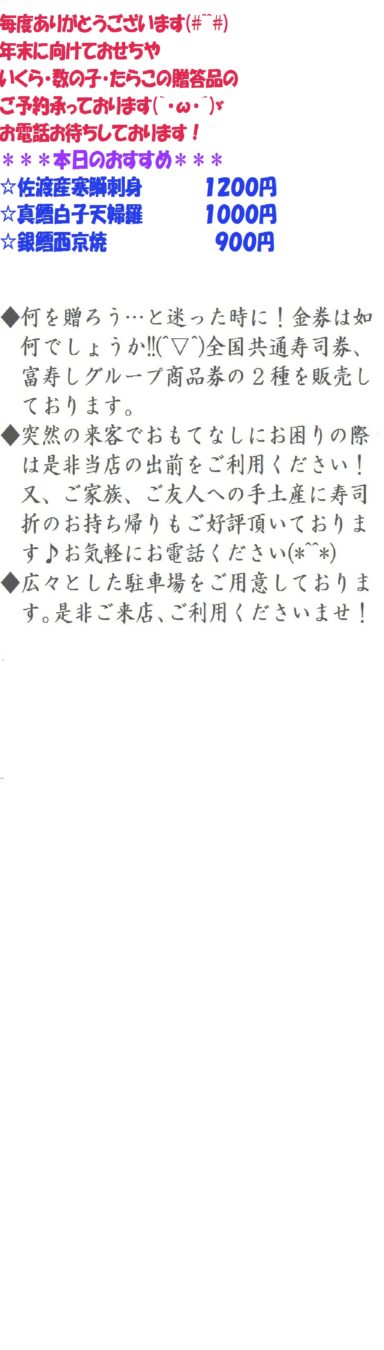 毎度ありがとうございます(#^^#)
年末に向けておせちや
いくら・数の子・たらこの贈答品の
ご予約承っております(｀・ω・´)ゞ
お電話お待ちしております！
＊＊＊本日のおすすめ＊＊＊
☆佐渡産寒鰤刺身　1200円
☆真鱈白子天婦羅　1000円
☆銀鱈西京焼　900円
◆何を贈ろう…と迷った時に！金券は如
何でしょうか!!(^▽^)全国共通寿司券、
富寿しグループ商品券の２種を販売し
ております。
◆突然の来客でおもてなしにお困りの際
は是非当店の出前をご利用ください！
又、ご家族、ご友人への手土産に寿司
折のお持ち帰りもご好評頂いておりま
す♪お気軽にお電話ください(*^^*)
◆広々とした駐車場をご用意しておりま
す。是非ご来店、ご利用くださいませ！